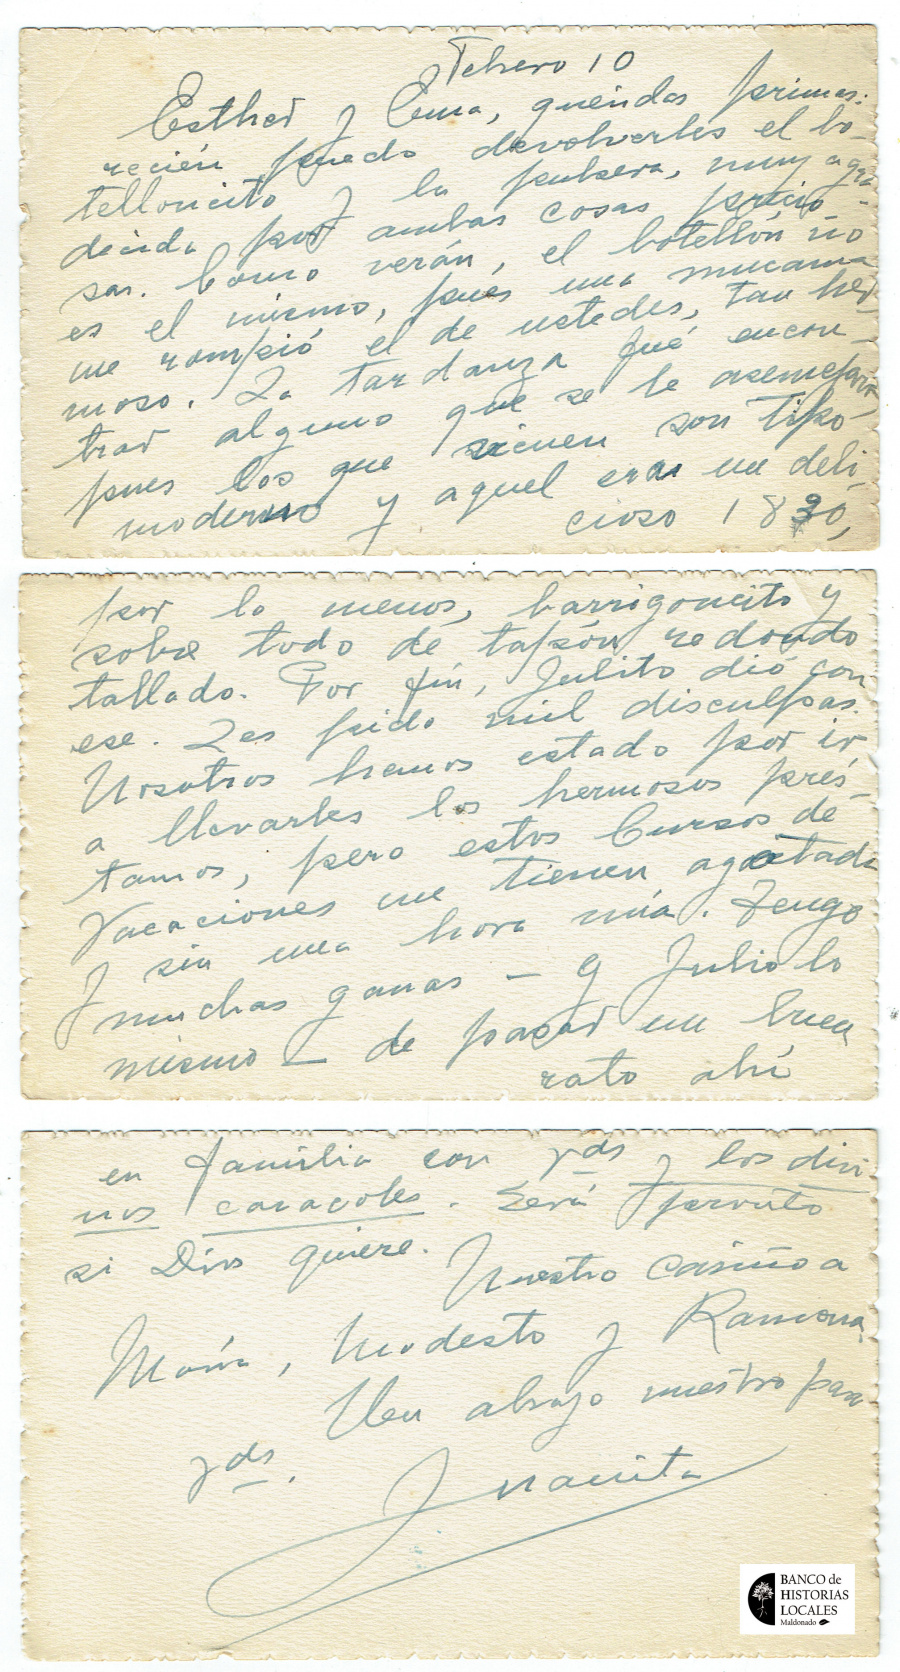 Febrero 10
Esther y Ema, queridas primas:
recién puedo devolverles el bo-
telloncito y la pulsera, muy agra
decida por ambas cosas precio-
sas. Como verán, el botellón no
es el mismo, pués una mucama
me rompió el de ustedes, tan her
moso. La tardanza fué encon-
trar alguno que se le asemejara
pues los que vienen son tipo
moderno y aquel era un deli-
cioso 1830,
por lo menos, barrigoncito y
sobre todo de tapón redondo
tallado. Por fin, Julito dió con
ese. Les pido mil disculpas.
Nosotros hemos estado por ir
a llevarles los hermosos prés-
tamos, pero estos Cursos de
Vacaciones me tienen agotada
y sin una hora mía. Tengo
muchas ganas — y Julio lo
mismo — de pasar un buen
rato ahí
en familia con Vds y los divi-
nos caracoles. Será pronto
si Dios quiere.
Nuestro cariño a
María, Modesto y Ramona.
Un abrazo nuestro para
Vds.
Juanita
BANCO de
HISTORIAS
LOCALES
Maldonado